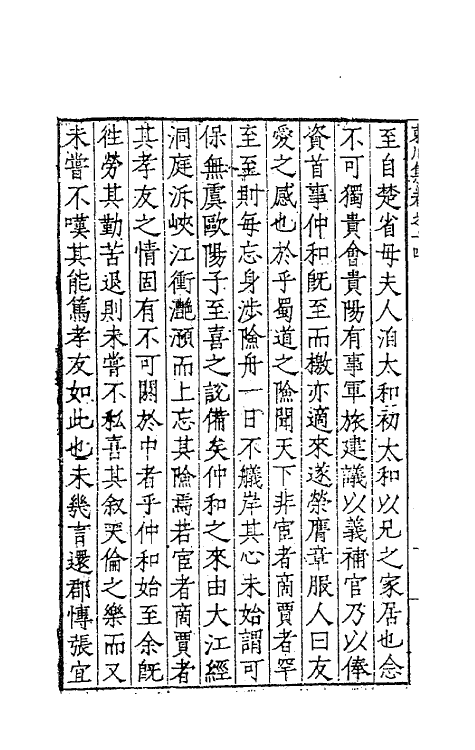 至自楚省母夫人洎太和初太和以兄之家居也念
不可獨貴會貴陽有事軍旅建議以義補官乃以俸
資首事仲和既至而檄亦適來遂榮膺章服人曰友
愛之感也於乎蜀道之險聞天下非宦者商賈者罕
至至則每忘身涉險舟一日不艤岸其心未始謂可
保無虞歐陽子至喜之說備矣仲和之來由大江經
洞庭泝峽江衝灩澦而上忘其險焉若宦者商賈者
其孝友之情固有不可關於中者乎仲和始至余既
徃勞其勤苦退則未嘗不私喜其敘天倫之樂而又
未嘗不嘆其能篤孝友如此也未幾言還郡愽張宜